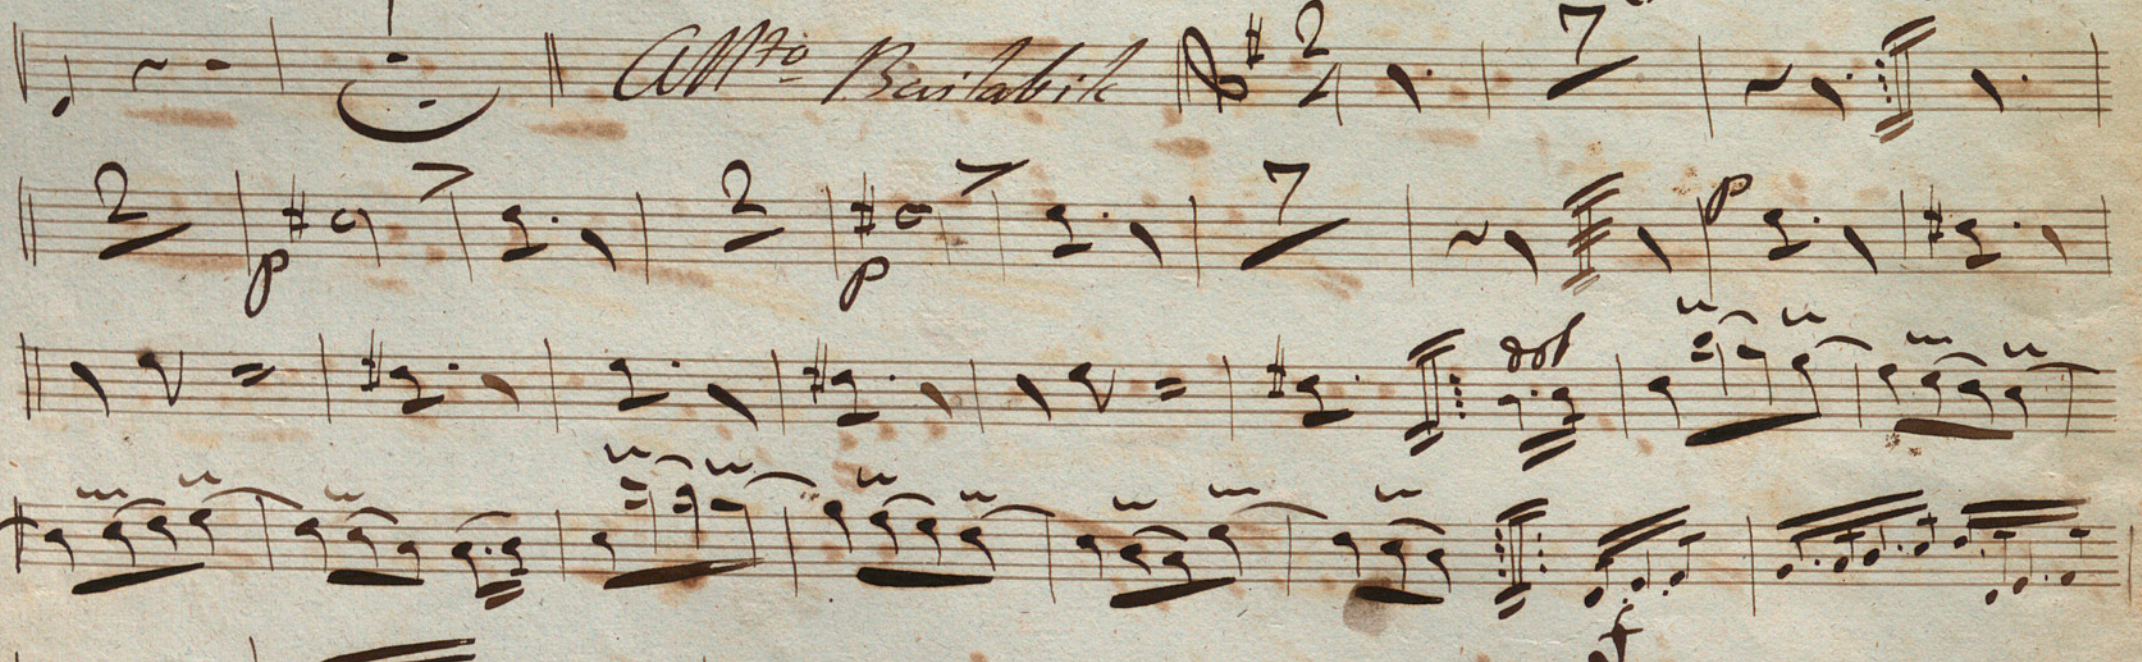 All.to Bailabile 2/4 7
2 p 2 p 7 p
dol
f